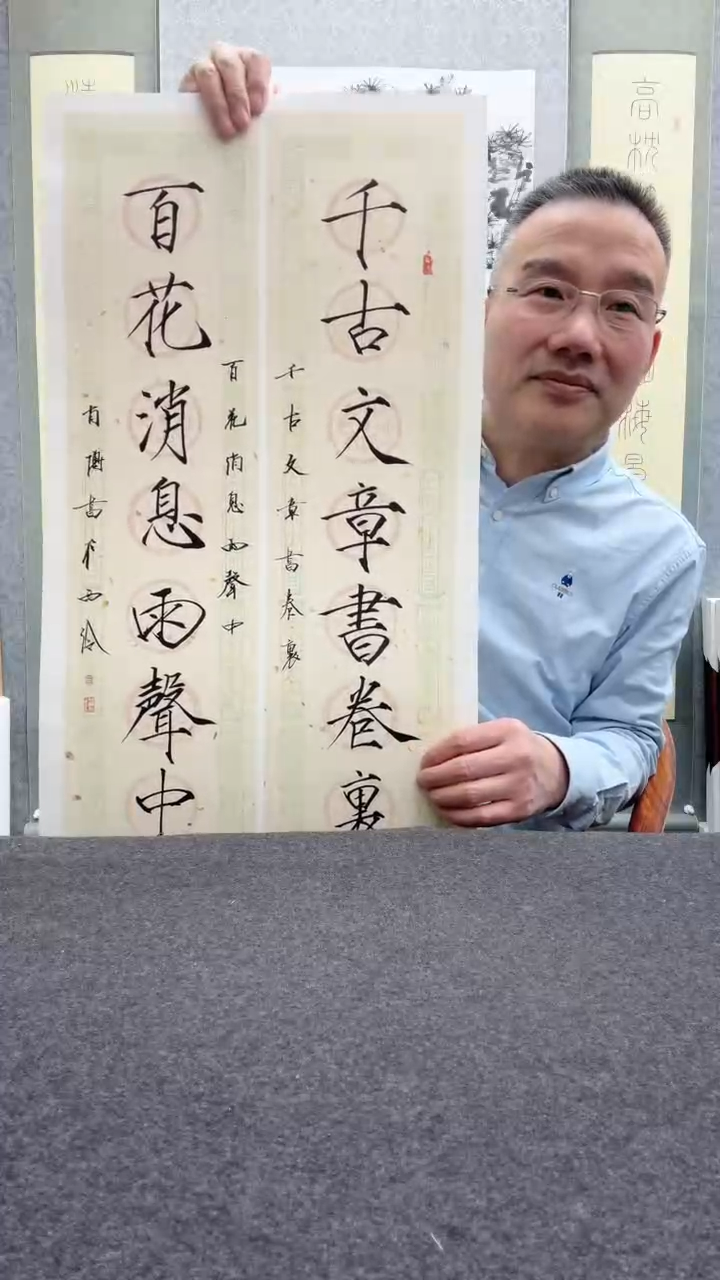 千古文章書卷裏
千古文章書卷裏
百花消息雨聲中
百花消息雨聲中
書於西泠
高枕